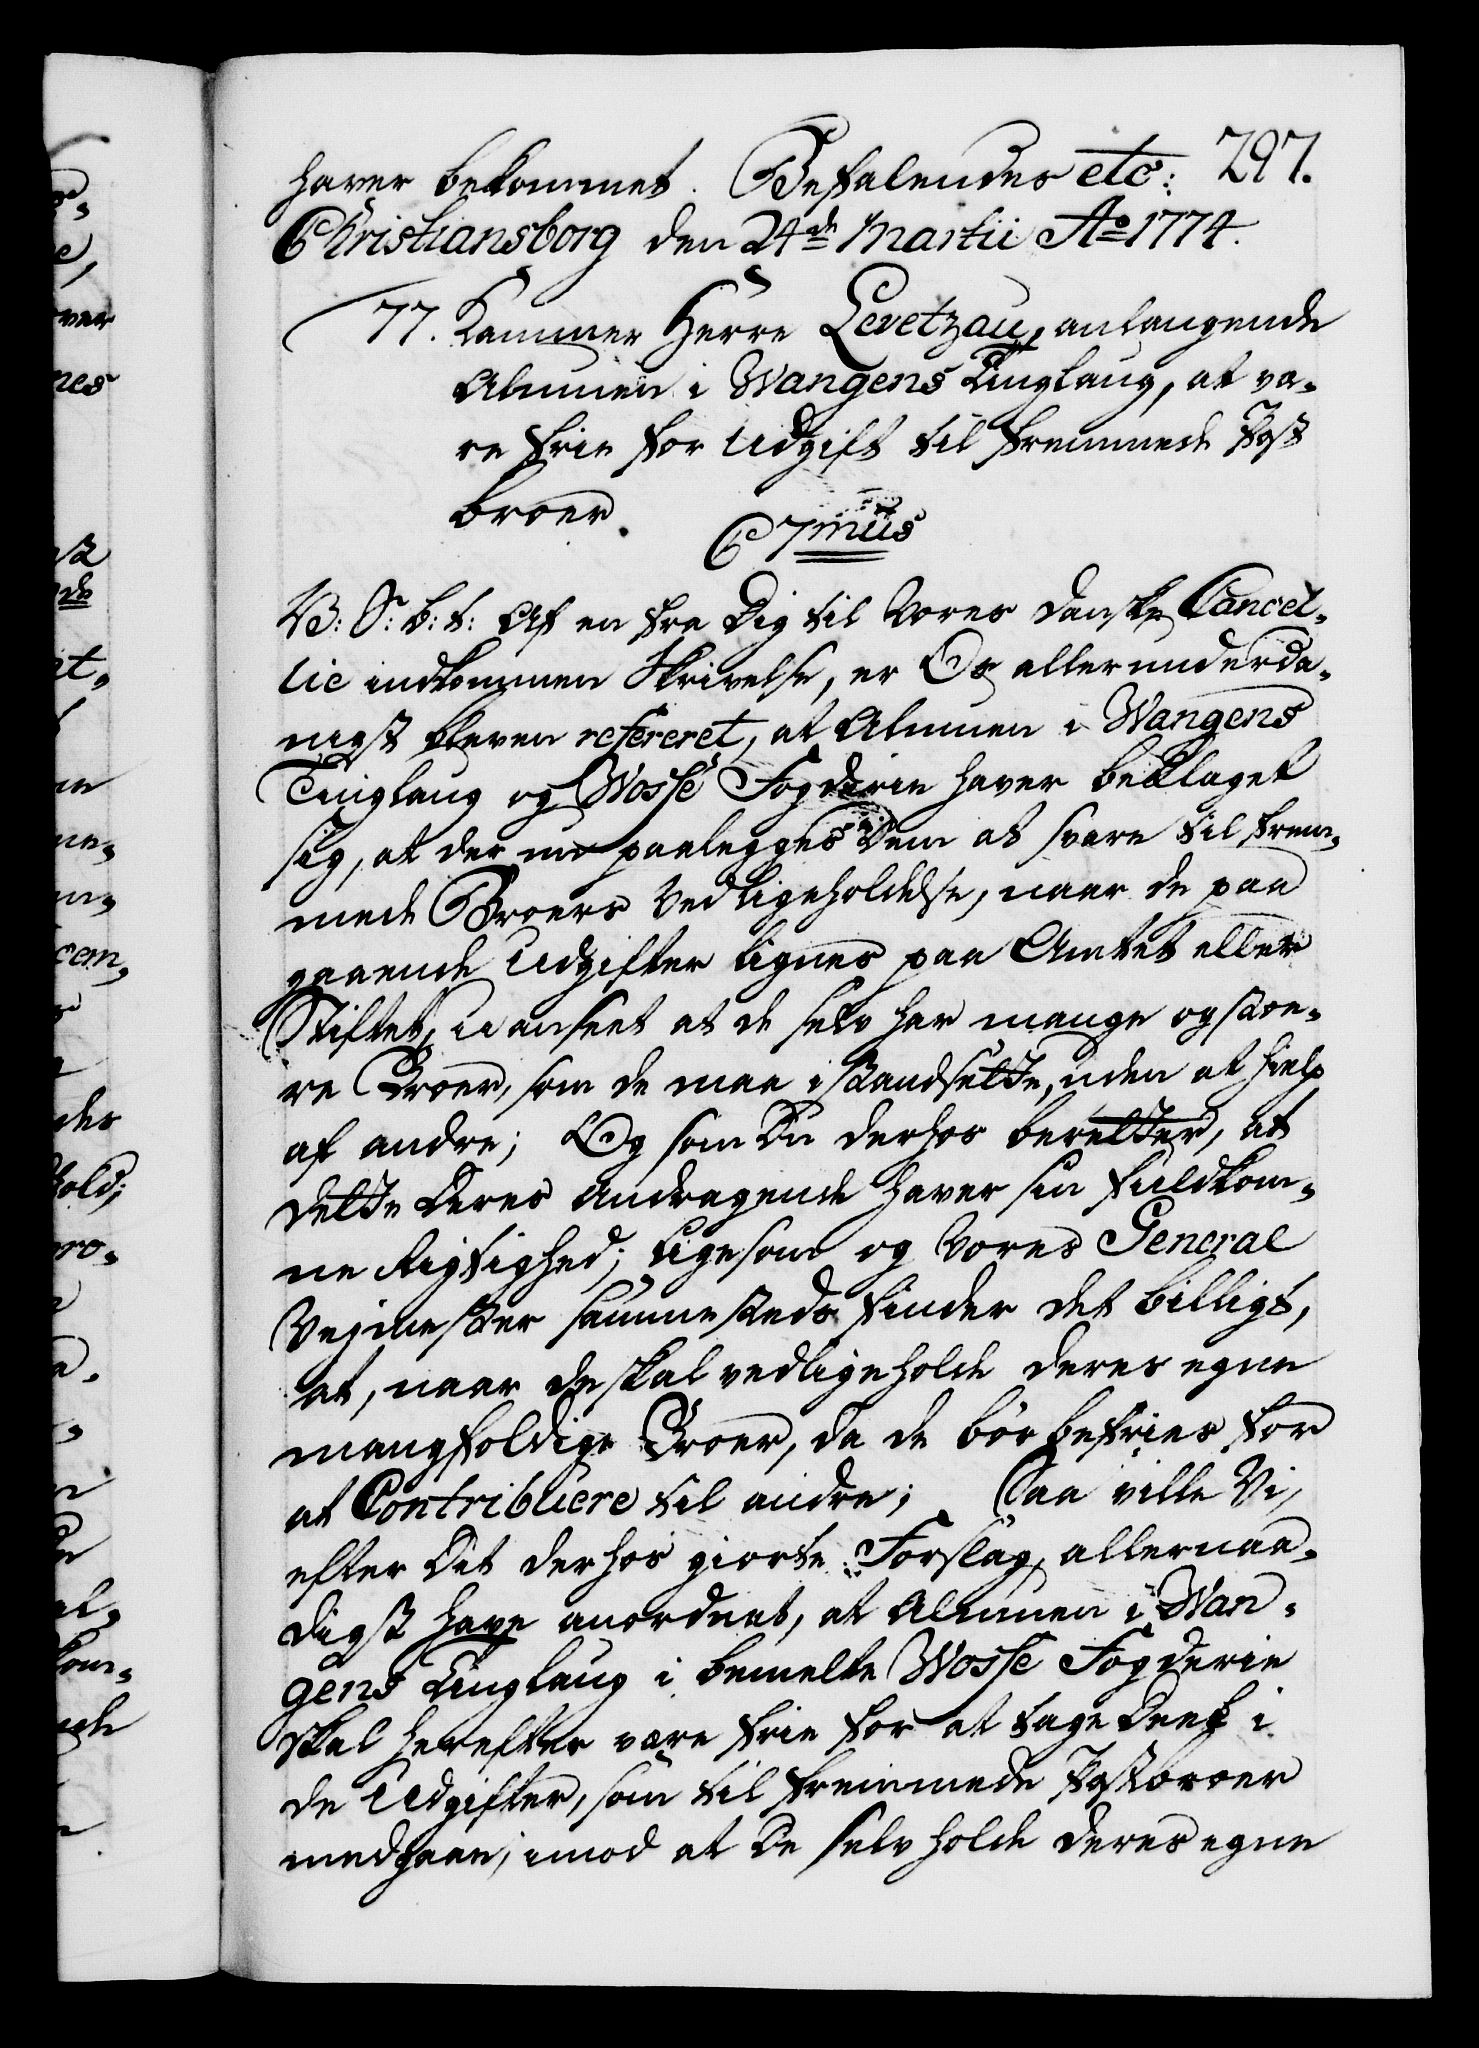 haver bekommet. Befalendes etc: 297.
Christiansborg den 24de Martii Ao 1774.
77. Kammer Herre Levetzau, anlangende
Almuen i Wangens Tinglaug, at væ-
re frie for Udgift til fremmede Post
broer.
C 7mus
V: S: b: t: Af en fra Dig til Vores Danske Cancel-
lie indkommen Skrivelse, er Os allerunderda-
nigst bleven refereret, at Almuen i Wangens
Tinglaug og Wosse Fogderie haver beklaget
sig, at der paalegges Dem at svare til frem-
mede Broers Vedligeholdelse, naar de paa
gaaende Udgifter lignes paa Amtet eller
Stiftet, uanseet at de selv har mange og stoe-
re Broer, som de maa istandsette, uden at hielp
af andre; Og som Du derhos beretter, at
dette Deres Andragende haver sin fuldkom-
ne Rigtighed; ligesom og Vores General
Vejmester sammesteds finder det billigt,
at, naar de skal vedligeholde deres egne
mangfoldige Broer, da de bør befries for
at Contribuere til andre; Saa ville Vi,
efter Dit derhos giorte Forslag, allernaa-
digst have anordnet, at Almuen i Wan-
gens Tinglaug i bemelte Wosse Fogderie
skal herefter være frie for at tage Deel i
de Udgifter, som til fremmede Postbroer
medgaae, imod at De selv holde deres egne